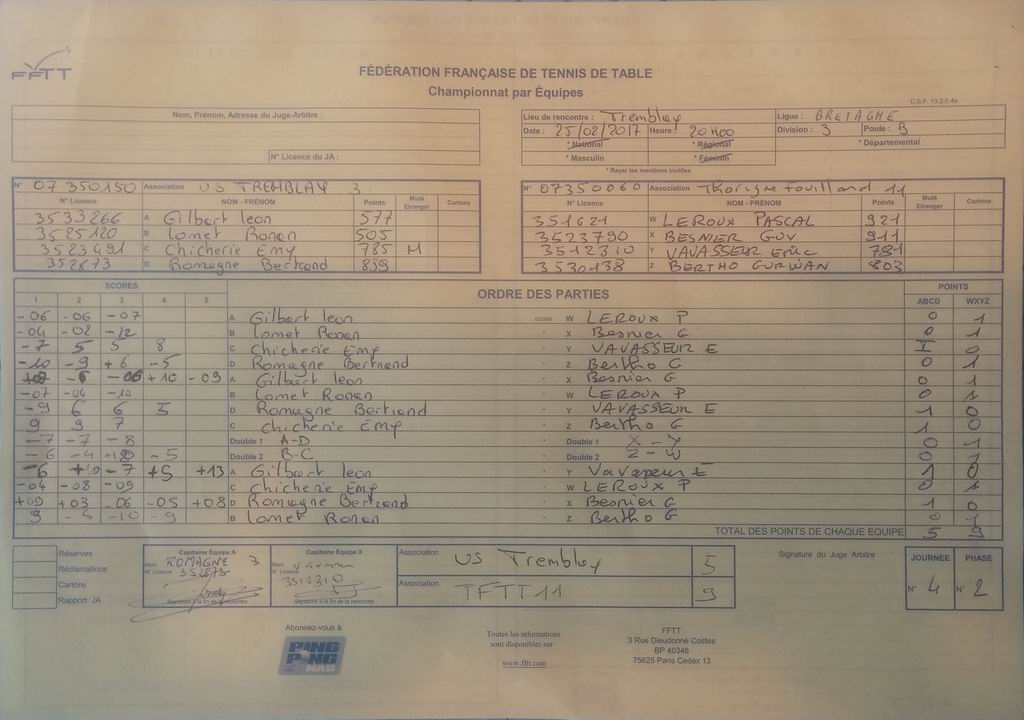 FFTT
FÉDÉRATION FRANÇAISE DE TENNIS DE TABLE
Championnat par Équipes
C.S.F. 13.2.0.4a
Nom, Prénom, Adresse du Juge-Arbitre :
N° Licence du JA :
Lieu de rencontre : Tremblay Ligue : BRETAGNE
Date : 25/02/2017 Heure : 20H00 Division : 3 Poule : B
* National * Régional * Départemental
* Masculin * Féminin
* Rayer les mentions inutiles
N° 07 350150 Association US TREMBLAY 3
N° Licence NOM - PRÉNOM Points Muté Etranger Cartons
3533266 A Gilbert leon 577
3525120 B Lomet Ronan 505
3523491 C Chicherie Emy 785 M
352873 D Romagne Bertrand 839
N° 07350060 Association Thorigne fouillard 11
N° Licence NOM - PRÉNOM Points Muté Etranger Cartons
351621 W LEROUX PASCAL 921
3523790 X BESNIER GUY 911
3512310 Y VAVASSEUR Eric 781
3530138 Z BERTHO GURWAN 803
SCORES ORDRE DES PARTIES POINTS
1 2 3 4 5 ABCD WXYZ
-06 -06 -07 A Gilbert leon contre W LEROUX P 0 1
-04 -02 -12 B Lomet Ronan - X Besnier G 0 1
-7 5 5 8 C Chicherie Emy - Y VAVASSEUR E 1 0
-10 -9 +6 -5 D Romagne Bertrand - Z Bertho G 0 1
-06 +10 -09 A Gilbert leon - X Besnier G 0 1
-07 -04 -10 B Lomet Ronan - W LEROUX P 0 1
-9 6 6 5 D Romagne Bertrand - Y VAVASSEUR E 1 0
9 9 7 C Chicherie Emy - Z Bertho G 1 0
-7 -7 -8 Double 1 A-D - Double 1 X-Y 0 1
-6 -4 -5 Double 2 B-C - Double 2 Z-W 0 1
-6 +10 -7 +5 +13 A Gilbert leon - Y Vavasseur E 1 0
-04 -08 -09 C Chicherie Emy - W LEROUX P 0 1
+09 +03 -06 -05 +08 D Romagne Bertrand - X Besnier G 1 0
9 -5 -10 -9 B Lomet Ronan - Z Bertho G 0 1
TOTAL DES POINTS DE CHAQUE EQUIPE 5 9
Réserves
Réclamations
Cartons
Rapport JA
Capitaine Equipe A
Nom ROMAGNE 3
N° Licence 352873
Signature à la fin de la rencontre
Capitaine Equipe X
Nom
N° Licence 3512310
Signature à la fin de la rencontre
Association US Tremblay 5
Association TFTT 11 9
Signature du Juge Arbitre
JOURNEE PHASE
N° 4 N° 2
Abonnez-vous à
PING PONG MAG
Toutes les informations
sont disponibles sur :
www.fftt.com
FFTT
3 Rue Dieudonné Costes
BP 40348
75625 Paris Cedex 13